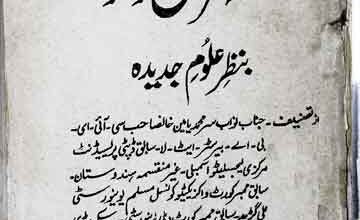 بنظرِ علومِ جدیدہ
از تصنیف۔ جناب نواب سر محمد یامین خانصاحب سی۔ آئی۔ ای۔
بی۔ اے۔ بیرسٹر۔ ایٹ۔ لا۔ سابق ڈپٹی پریسیڈنٹ
مرکزی لیجسلیٹو اسمبلی۔ غیر منقسمہ ہندوستان۔
سابق ممبر کورٹ و اگزیکیٹو کونسل مسلم یونیورسٹی
علی گڑھ